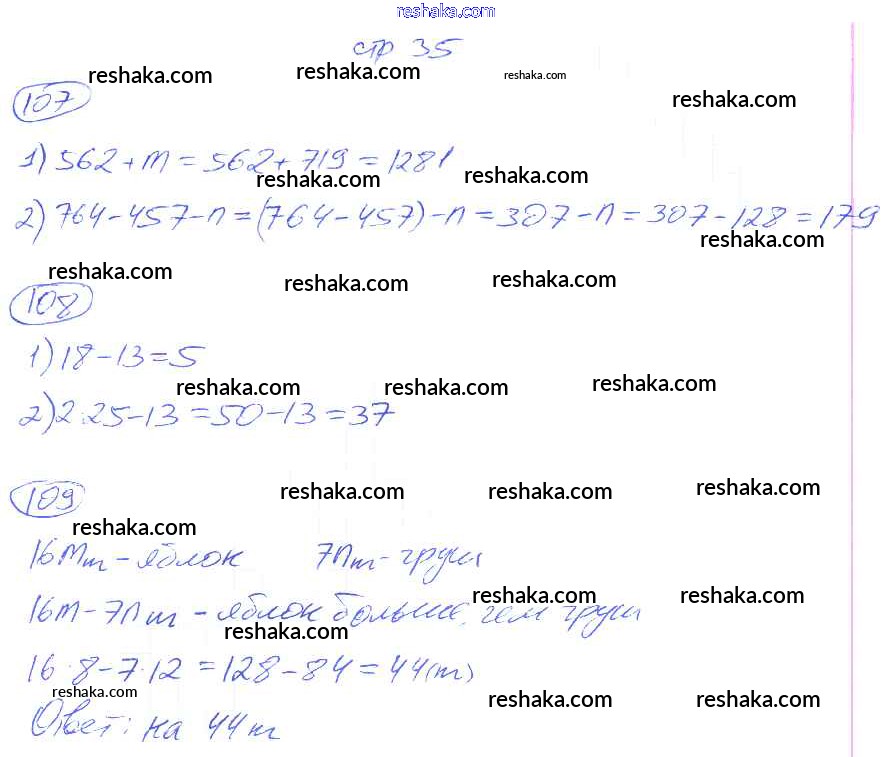 reshaka.com
стр 35
reshaka.com reshaka.com reshaka.com
107 reshaka.com
1) 562 + m = 562 + 719 = 1281
reshaka.com reshaka.com
2) 764 - 457 - n = (764 - 457) - n = 307 - n = 307 - 128 = 179
reshaka.com
reshaka.com reshaka.com reshaka.com
108
1) 18 - 13 = 5
reshaka.com reshaka.com reshaka.com
2) 2·25 - 13 = 50 - 13 = 37
109 reshaka.com reshaka.com reshaka.com
reshaka.com
16m т - яблок 7n т - груш
reshaka.com reshaka.com
16m - 7n т - яблок больше, чем груш
reshaka.com
16·8 - 7·12 = 128 - 84 = 44 (т)
reshaka.com reshaka.com reshaka.com
Ответ: на 44 т